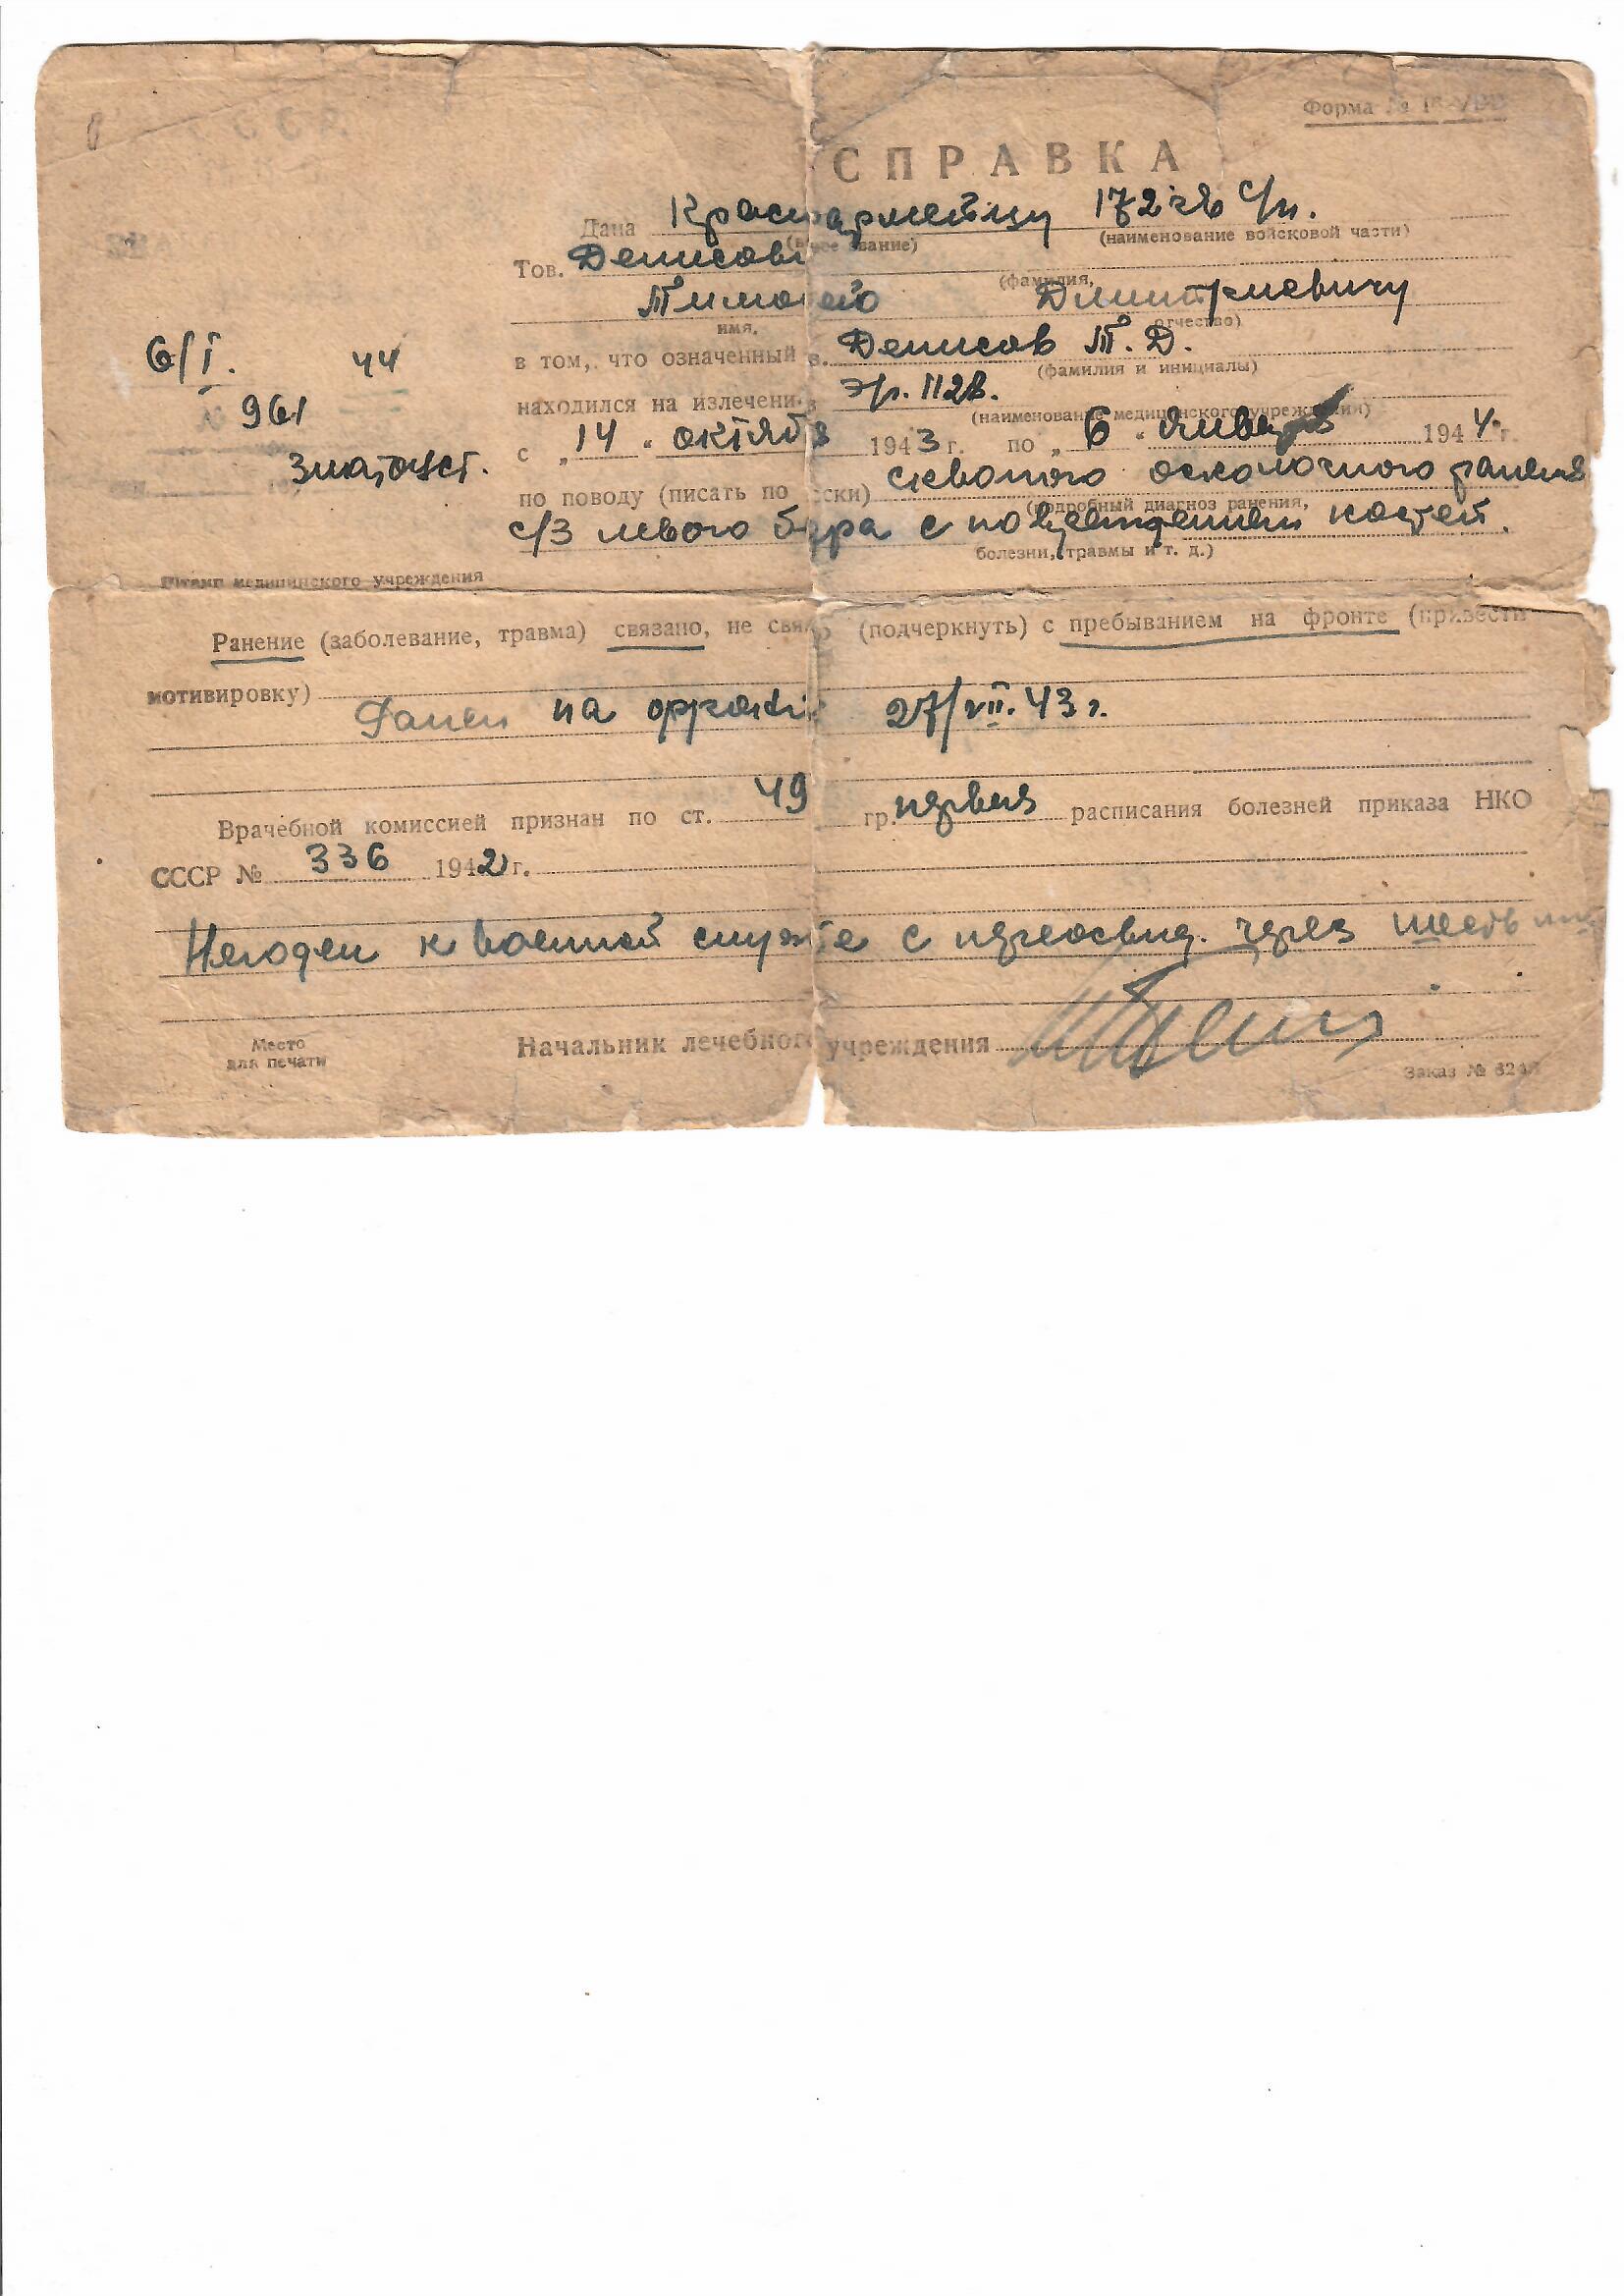 Форма №
СПРАВКА
Дана Красноармейцу 172 гв с/п.
(наименование войсковой части)
Тов. Денисову
(фамилия,
Тимофею Димитриевичу
имя, отчество)
6/I. 44
в том, что означенный в. Денисов Т. Д.
(фамилии и инициалы)
961
находился на излечении в эг. 1128.
(наименование медицинского учреждения)
с „14" октября 1943 г. по „6" января 1944 г.
Златоуст.
по поводу (писать по ски) слепого осколочного ранения
(подробный диагноз ранения,
с/3 левого бедра с повреждением костей.
болезни, травмы и т. д.)
Штамп медицинского учреждения
Ранение (заболевание, травма) связано, не свя (подчеркнуть) с пребыванием на фронте (привести
мотивировку)
Ранен на фронте 27/VII. 43 г.
Врачебной комиссией признан по ст. 49 гр. первая расписания болезней приказа НКО
СССР № 336 1942 г.
Негоден к военной службе с переосвид. через шесть
Место
для печати
Начальник лечебного учреждения
Заказ №